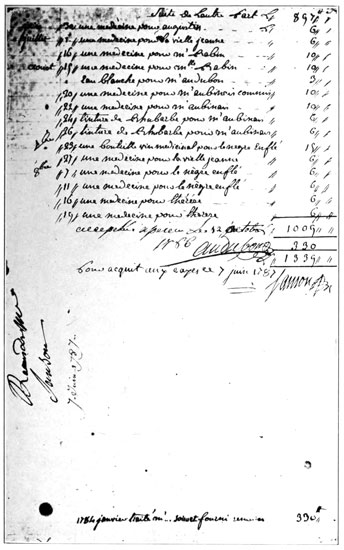 Porte de L'autre Part 897
30 une medecine pour augustin 6
juillet 5 une medecine pour la vieille jeanne 6
16 une medecine pour mr Rabin 10
aoust 18 une medecine pour mlle Rabin 10
Eau blanche pour mr audubon 3
20 une medecine pour mr aubinais 10
22 une medecine pour mr aubinais 10
24 tinture de Rhubarbe pour mr aubinais 6
26 tinture de Rhubarbe pour mr aubinais 6
29 une bouteille vin medicinal pour le negre enflé 15
27 une medecine pour la vieille jeanne 6
8bre 7 une medecine pour le negre enflé 6
11 une medecine pour le negre enflé 6
16 une medecine pour thérese 6
19 une medecine pour thérese 6
1009
1786
audubon 330
1339
Pour acquit aux cayes ce 7 juin 1787
Sanson
Sanson
7 juin 1787
1784 janvier traité mr fourni 330